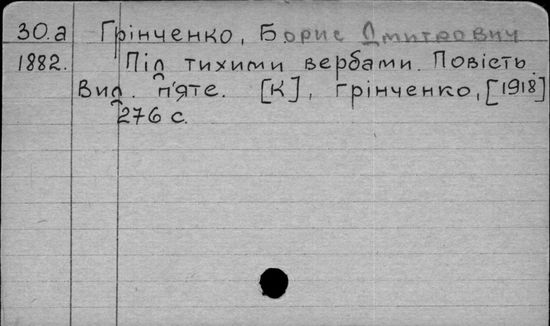 30.а Грінченко, Борис Дмитрович
1882. Під тихими вербами. Повість.
Вид. п'яте. [К], Грінченко, [1918]
276 с.